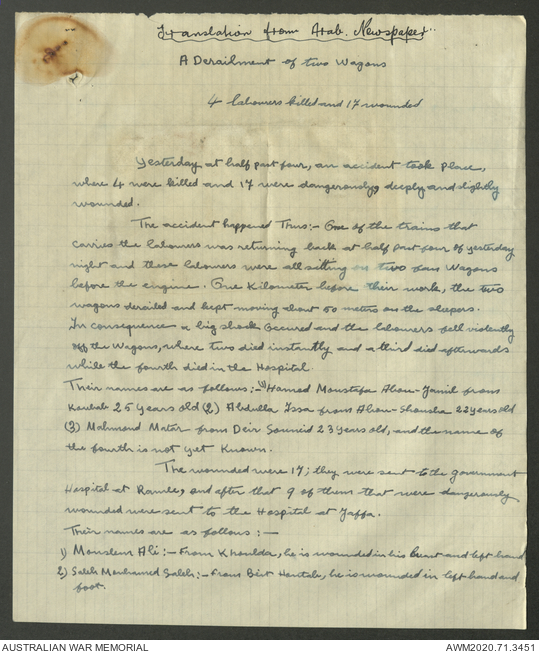 Translation from Arab. Newspaper
A Derailment of two Wagons
4 labourers killed and 17 wounded
Yesterday at half past four, an accident took place,
where 4 were killed and 17 were dangerously, deeply and slightly
wounded.
The accident happened Thus:- One of the trains that
carries the labourers was returning back at half past four of yesterday
night and these labourers were all sitting on two Wagons
before the engine. One Kilometer before their work, the two
wagons derailed and kept moving about 50 metres on the sleepers.
In consequence a big shock occured and the labourers fell violently
off the Wagons, where two died instantly and a third died afterwards
while the fourth died in the Hospital.
Their names are as follows:- (1) Hamed Moustafa Abou-Jamil from
Koubab 25 years old (2) Abdulla Issa from Abou-Shousha 22 years old
(3) Mahmoud Matar from Deir Souneid 23 years old, and the name of
the fourth is not yet Known.
The wounded were 17; they were sent to the government
Hospital at Ramle, and after that 9 of them that were dangerously
wounded were sent to the Hospital at Jaffa.
Their names are as follows:-
1) Monslem Ali:- From Khoulda, he is wounded in his and left hand
2) Saleh Mouhamed Saleh:- From Beit he is wounded in left hand and
foot.
AUSTRALIAN WAR MEMORIAL
AWM2020.71.3451